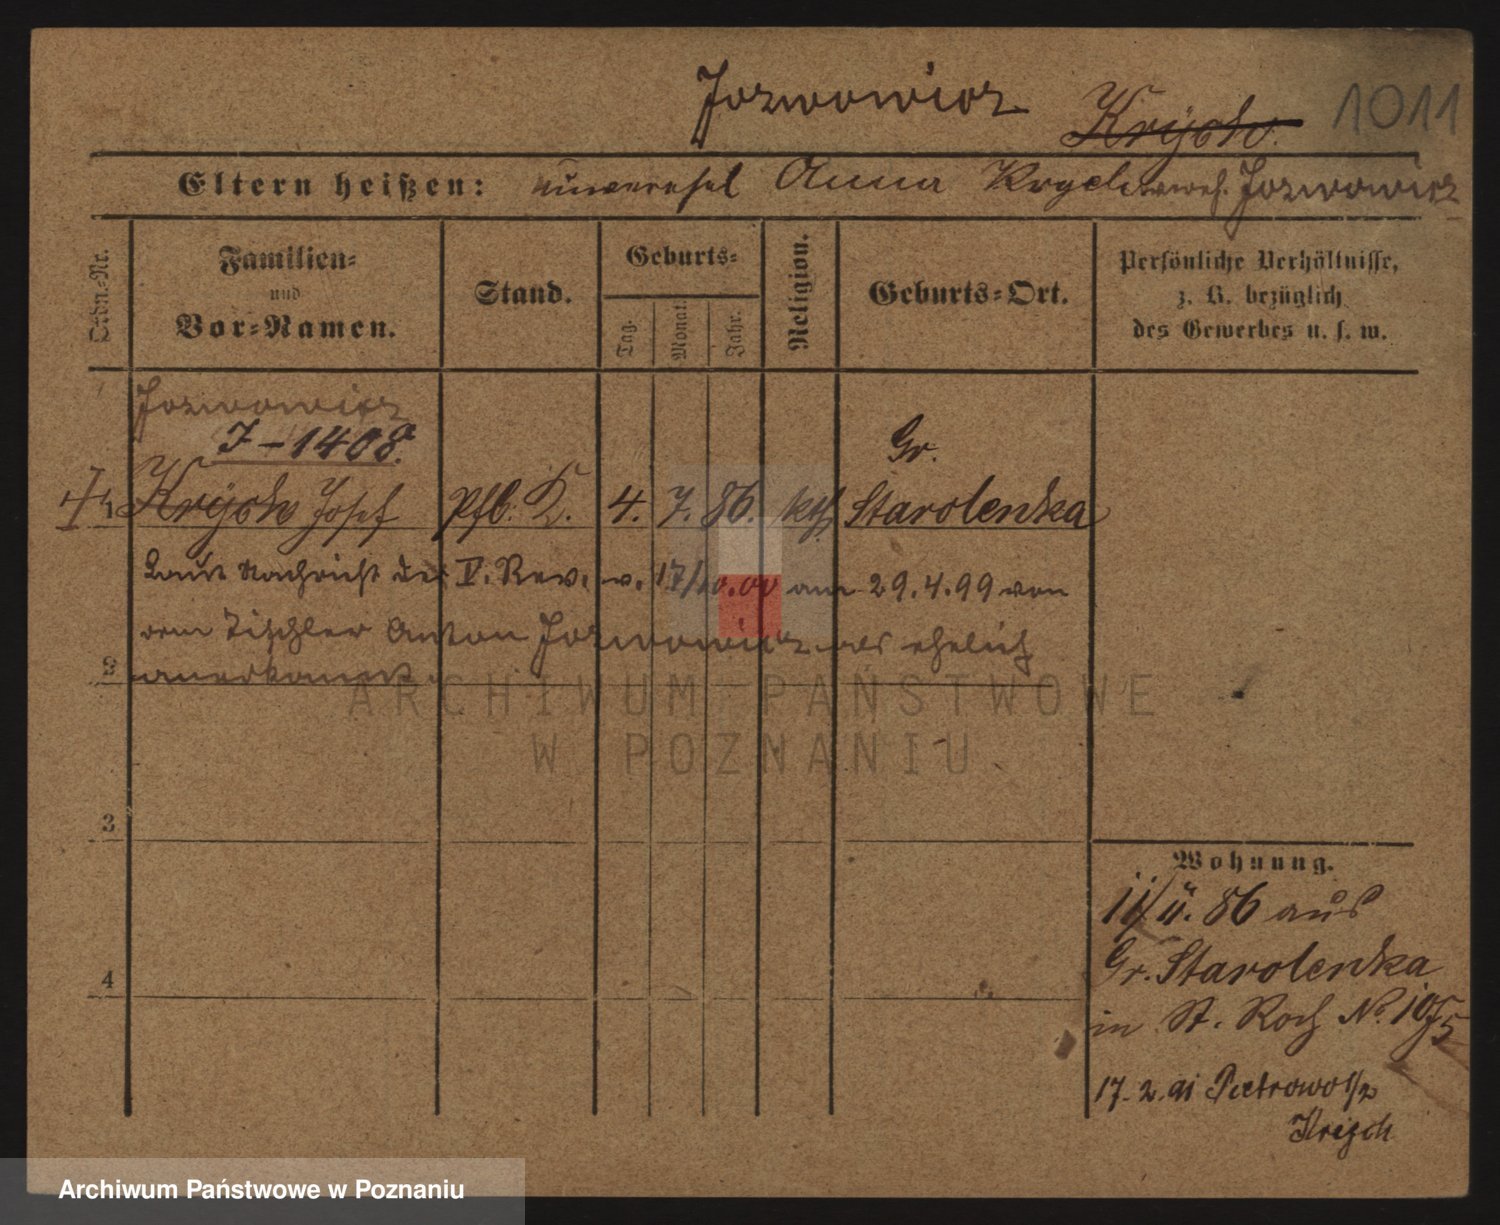 Jozwowicz Krysch. 1011
Eltern heißen: unverehel Anna Krych verw. Jozwowicz
Ordn.-Nr.
Familien-
und
Vor-Namen.
Stand.
Geburts-
Tag.
Monat.
Jahr.
Religion.
Geburts-Ort.
Persönliche Verhältnisse,
z. B. bezüglich
des Gewerbes u. s. w.
Jozwowicz
J-1408.
Gr.
1 Josef Pfl. K. 4. 7. 86. kth Starolenka
Laut Nachricht des V. Rev. v. 17/10.00 am 29.4.99 von
dem Tischler Anton Jozwowicz als ehelich
2 anerkannt.
3
4
Wohnung.
86 aus
Gr. Starolenka
in St. Roch No.
17. 2. 91 Pietrowo 1/2
ARCHIWUM PAŃSTWOWE
W POZNANIU
Archiwum Państwowe w Poznaniu